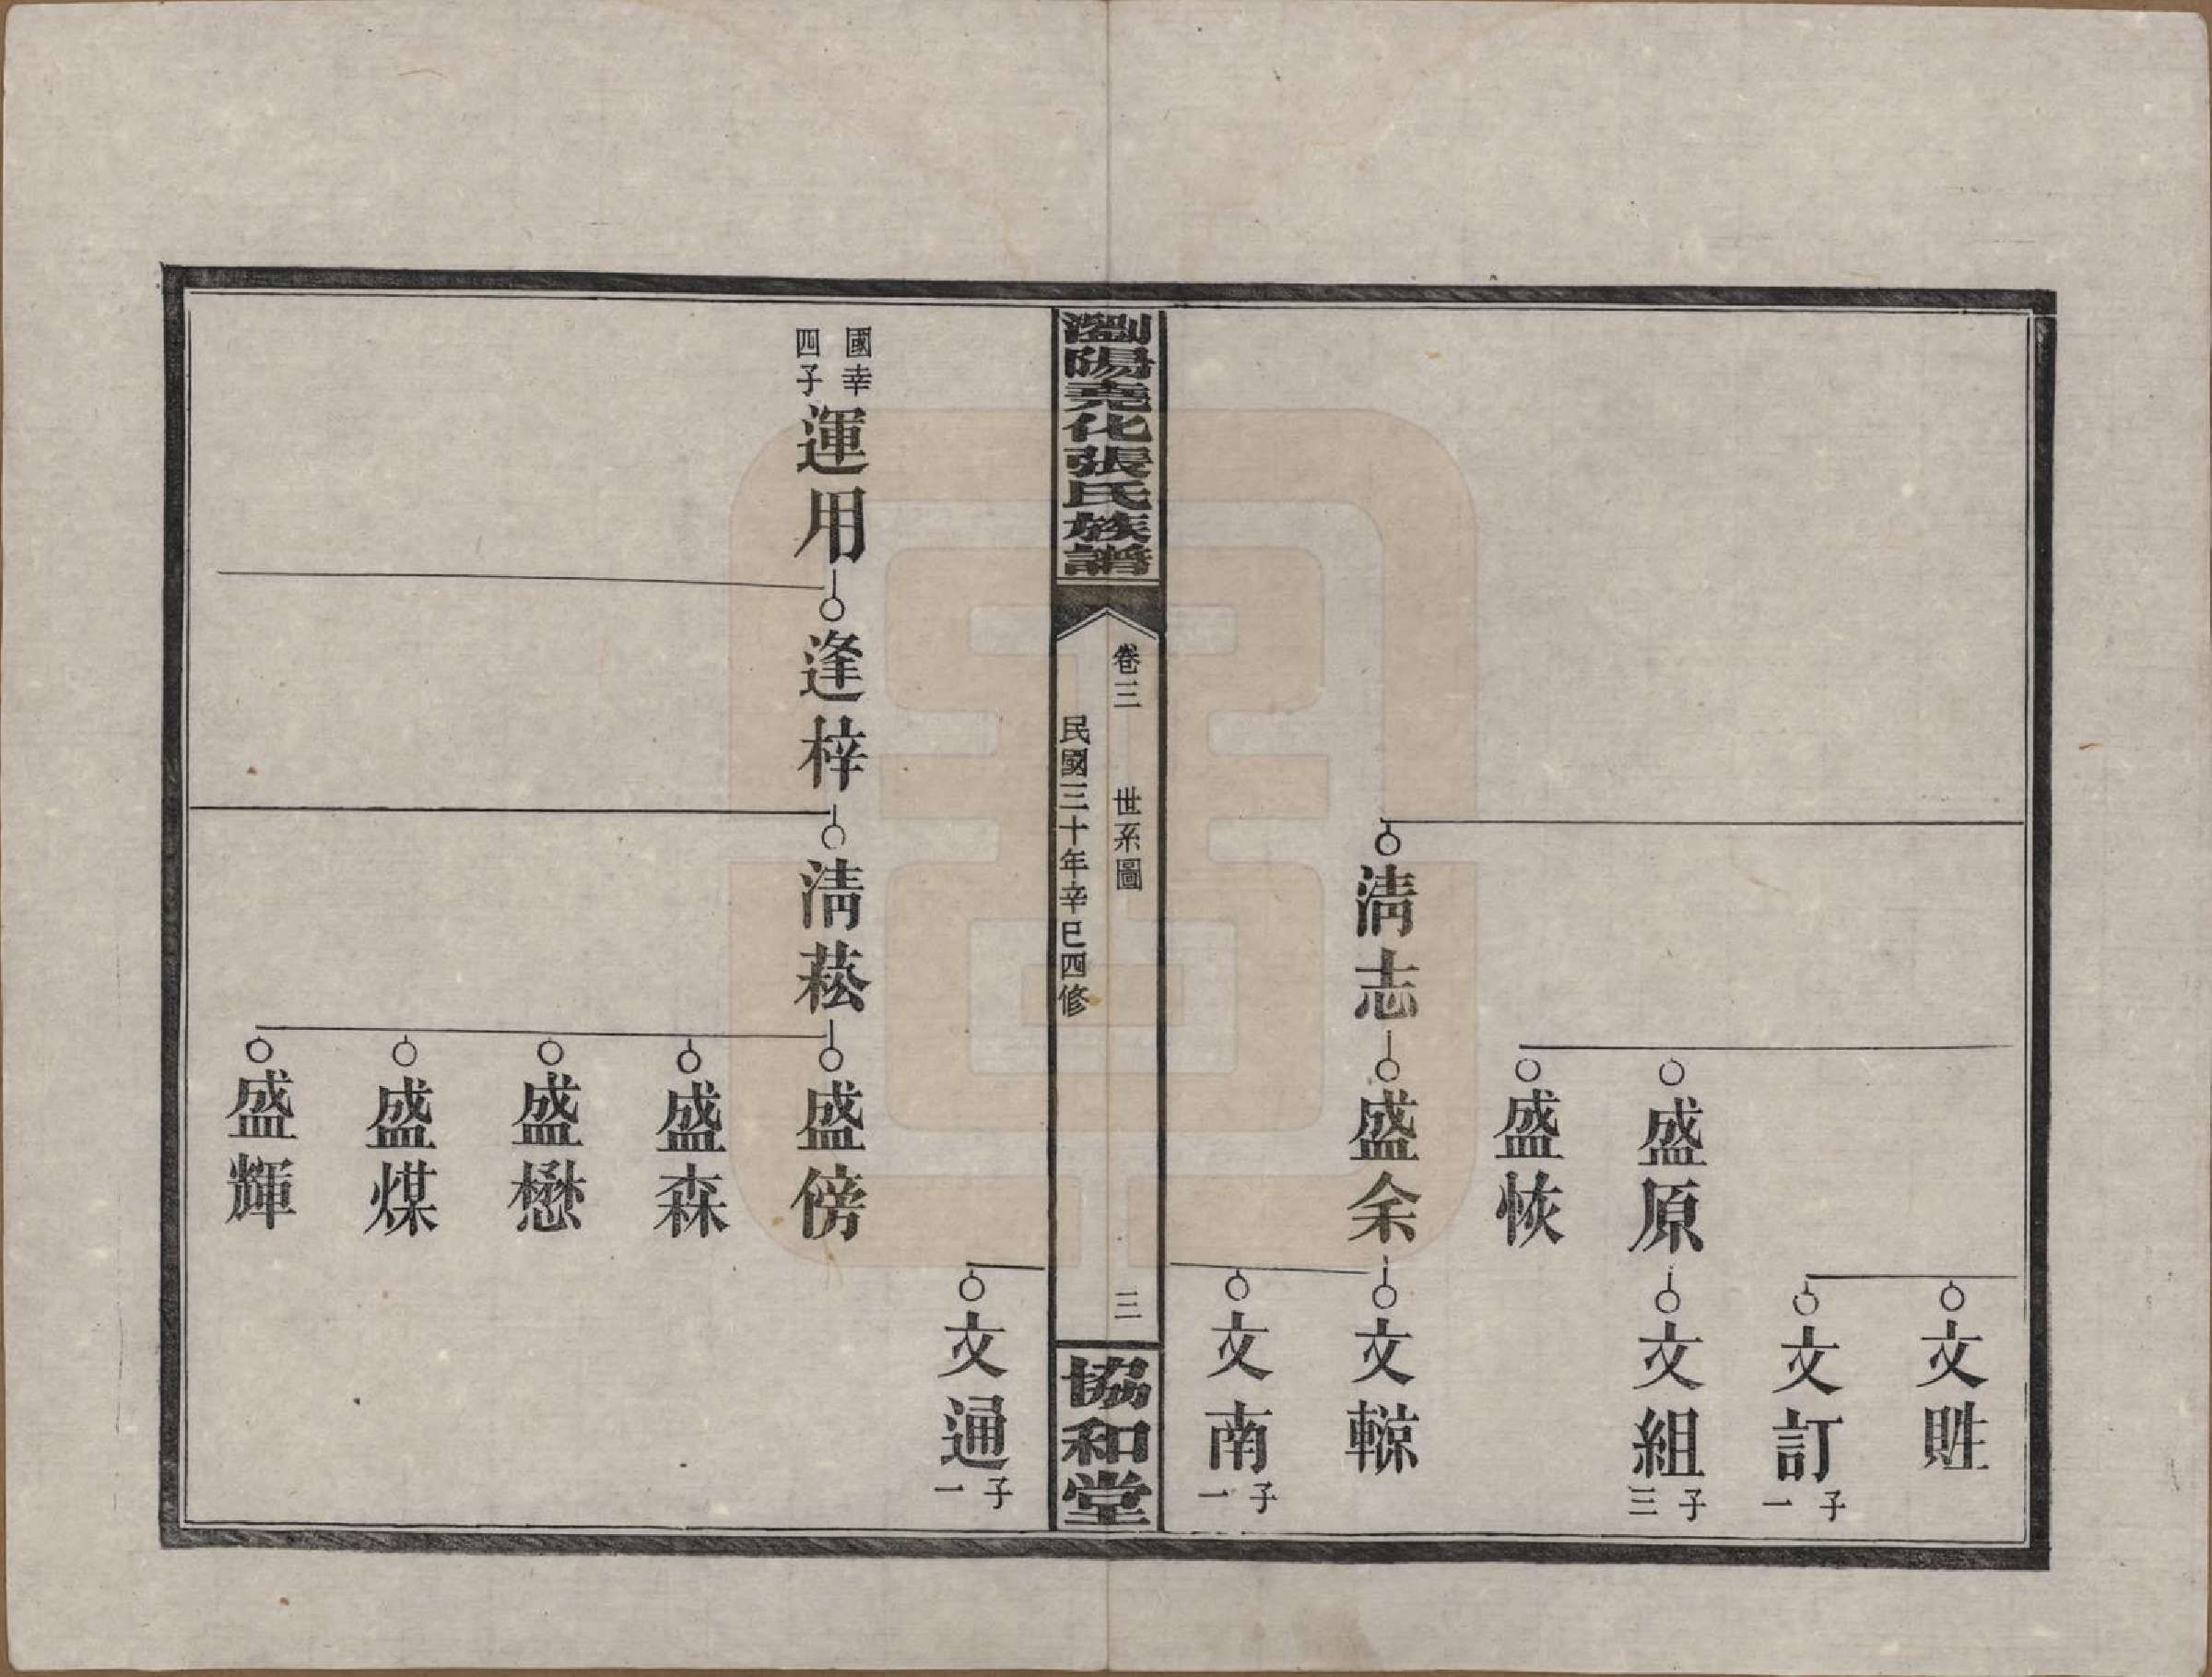 文貹
文訂 子一
盛原
文組 子三
盛恢
清志
盛余
文輬
文南 子一
瀏陽堯化張氏族譜
卷三 世系圖 三
民國三十年辛巳四修
協和堂
文通 子一
國幸四子
運用
逢梓
清菘
盛傍
盛森
盛懋
盛煤
盛輝